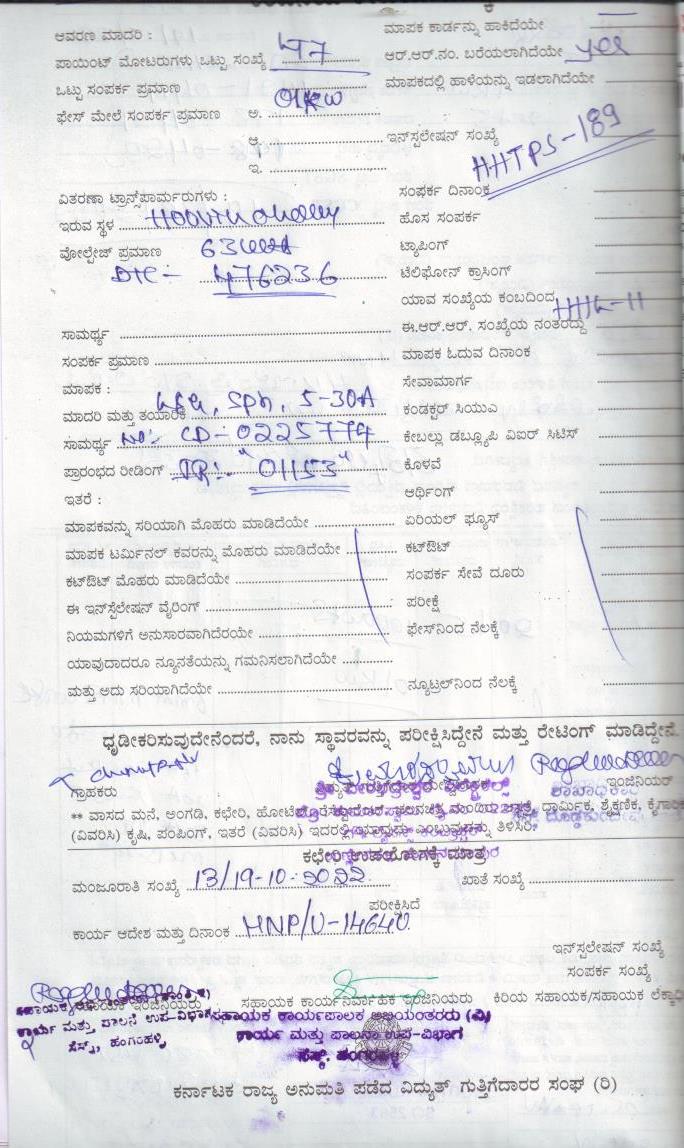 ಆವರಣ ಮಾದರಿ :
ಮಾಪಕ ಕಾರ್ಡನ್ನು ಹಾಕಿದೆಯೇ
ಪಾಯಿಂಟ್ ಮೋಟರುಗಳು ಒಟ್ಟು ಸಂಖ್ಯೆ 47
ಆರ್.ಆರ್.ನಂ. ಬರೆಯಲಾಗಿದೆಯೇ yes
ಒಟ್ಟು ಸಂಪರ್ಕ ಪ್ರಮಾಣ
ಮಾಪಕದಲ್ಲಿ ಹಾಳೆಯನ್ನು ಇಡಲಾಗಿದೆಯೇ
ಫೇಸ್ ಮೇಲೆ ಸಂಪರ್ಕ ಪ್ರಮಾಣ ಅ. 01KW
ಆ. ಇನ್‌ಸ್ಪಲೇಷನ್ ಸಂಖ್ಯೆ HHTPS-189
ಇ.
ವಿತರಣಾ ಟ್ರಾನ್ಸ್‌ಪಾರ್ಮರುಗಳು :
ಸಂಪರ್ಕ ದಿನಾಂಕ
ಇರುವ ಸ್ಥಳ
ಹೊಸ ಸಂಪರ್ಕ
ವೋಲ್ಟೇಜ್ ಪ್ರಮಾಣ
ಟ್ಯಾಪಿಂಗ್
DTC:- 476236
ಟೆಲಿಫೋನ್ ಕ್ರಾಸಿಂಗ್
ಯಾವ ಸಂಖ್ಯೆಯ ಕಂಬದಿಂದ
ಸಾಮರ್ಥ್ಯ
ಈ.ಆರ್.ಆರ್. ಸಂಖ್ಯೆಯ ನಂತರದ್ದು
ಸಂಪರ್ಕ ಪ್ರಮಾಣ
ಮಾಪಕ ಓದುವ ದಿನಾಂಕ
ಮಾಪಕ :
ಸೇವಾಮಾರ್ಗ
ಮಾದರಿ ಮತ್ತು ತಯಾರಿಕೆ 5-30A
ಕಂಡಕ್ಟರ್ ಸಿಯುಎ
ಸಾಮರ್ಥ್ಯ NO: CD-0225774
ಕೇಬಲ್ಲು ಡಬ್ಲ್ಯೂಪಿ ವಿಐರ್ ಸಿಟಿಸ್
ಪ್ರಾರಂಭದ ರೀಡಿಂಗ್ IR:- "01153"
ಕೊಳವೆ
ಇತರೆ :
ಆರ್ಥಿಂಗ್
ಮಾಪಕವನ್ನು ಸರಿಯಾಗಿ ಮೊಹರು ಮಾಡಿದೆಯೇ
ಏರಿಯಲ್ ಫ್ಯೂಸ್
ಮಾಪಕ ಟರ್ಮಿನಲ್ ಕವರನ್ನು ಮೊಹರು ಮಾಡಿದೆಯೇ
ಕಟ್‌ಔಟ್
ಕಟ್‌ಔಟ್ ಮೊಹರು ಮಾಡಿದೆಯೇ
ಸಂಪರ್ಕ ಸೇವೆ ದೂರು
ಈ ಇನ್‌ಸ್ಪೆಲೇಷನ್ ವೈರಿಂಗ್
ಪರೀಕ್ಷೆ
ನಿಯಮಗಳಿಗೆ ಅನುಸಾರವಾಗಿದೆರಯೇ
ಫೇಸ್‌ನಿಂದ ನೆಲಕ್ಕೆ
ಯಾವುದಾದರೂ ನ್ಯೂನತೆಯನ್ನು ಗಮನಿಸಲಾಗಿದೆಯೇ
ಮತ್ತು ಅದು ಸರಿಯಾಗಿದೆಯೇ
ನ್ಯೂಟ್ರಲ್‌ನಿಂದ ನೆಲಕ್ಕೆ
ಧೃಡೀಕರಿಸುವುದೇನೆಂದರೆ, ನಾನು ಸ್ಥಾವರವನ್ನು ಪರೀಕ್ಷಿಸಿದ್ದೇನೆ ಮತ್ತು ರೇಟಿಂಗ್ ಮಾಡಿದ್ದೇನೆ.
ಗ್ರಾಹಕರು ಇಂಜಿನಿಯರ್
** ವಾಸದ ಮನೆ, ಅಂಗಡಿ, ಕಛೇರಿ, ಧಾರ್ಮಿಕ, ಶೈಕ್ಷಣಿಕ, ಕೈಗಾರಿ
(ವಿವರಿಸಿ) ಕೃಷಿ, ಪಂಪಿಂಗ್, ಇತರೆ (ವಿವರಿಸಿ) ಇದರಲ್ಲಿ ಯಾವುದು ಎಂಬುವುದನ್ನು ತಿಳಿಸಿರಿ.
ಕಛೇರಿ ಉಪಯೋಗಕ್ಕೆ ಮಾತ್ರ
ಮಂಜೂರಾತಿ ಸಂಖ್ಯೆ 13/19-10-2022 ಖಾತೆ ಸಂಖ್ಯೆ
ಪರೀಕ್ಷಿಸಿದೆ
ಕಾರ್ಯ ಆದೇಶ ಮತ್ತು ದಿನಾಂಕ HNP/U-14640
ಇನ್‌ಸ್ಪಲೇಷನ್ ಸಂಖ್ಯೆ
ಸಂಪರ್ಕ ಸಂಖ್ಯೆ
ಇಂಜಿನಿಯರು ಸಹಾಯಕ ಕಾರ್ಯನಿರ್ವಾಹಕ ಇಂಜಿನಿಯರು ಕಿರಿಯ ಸಹಾಯಕ/ಸಹಾಯಕ ಲೆಕ್ಕಾಧಿ
ಸಹಾಯಕ ಕಾರ್ಯಪಾಲಕ ಅಭಿಯಂತರರು (ವಿ)
ಕಾರ್ಯ ಮತ್ತು ಪಾಲನೆ ಉಪ-ವಿಭಾಗ
ಕಾರ್ಯ ಮತ್ತು ಪಾಲನಾ ಉಪ-ವಿಭಾಗ
ಸೆಸ್ಕ್, ಹಂಗಂಹಳ್ಳಿ
ಸೆಸ್ಕ್. ಹಂಗಂಹಳ್ಳಿ
ಕರ್ನಾಟಕ ರಾಜ್ಯ ಅನುಮತಿ ಪಡೆದ ವಿದ್ಯುತ್ ಗುತ್ತಿಗೆದಾರರ ಸಂಘ (ರಿ)